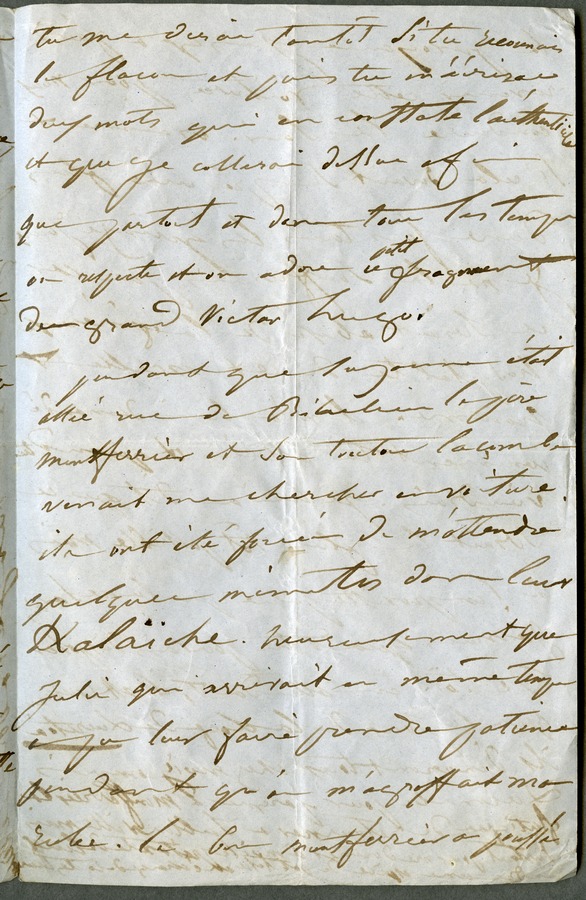 tu me diras tantôt si tu reconnais
le flacon et puis tu m'écriras
deux mots qui en constate l'authenticité
et que je collerai dessus afin
que partout et dans tous les temps
on respecte et on adore ce petit fragment
du grand Victor Hugo.
pendant que Suzanne était
allé rue de Richelieu le père
montferrier et son toutou Lacombe
venait me chercher en voiture
ils ont été forcé de m'attendre
quelques minutes dans leur
Kalaïche. heureusement que
Julie qui arrivait en même temps
a pu leur faire prendre patience
pendant qu'on m'agraffait ma
robe. le bon montferrier a poussé